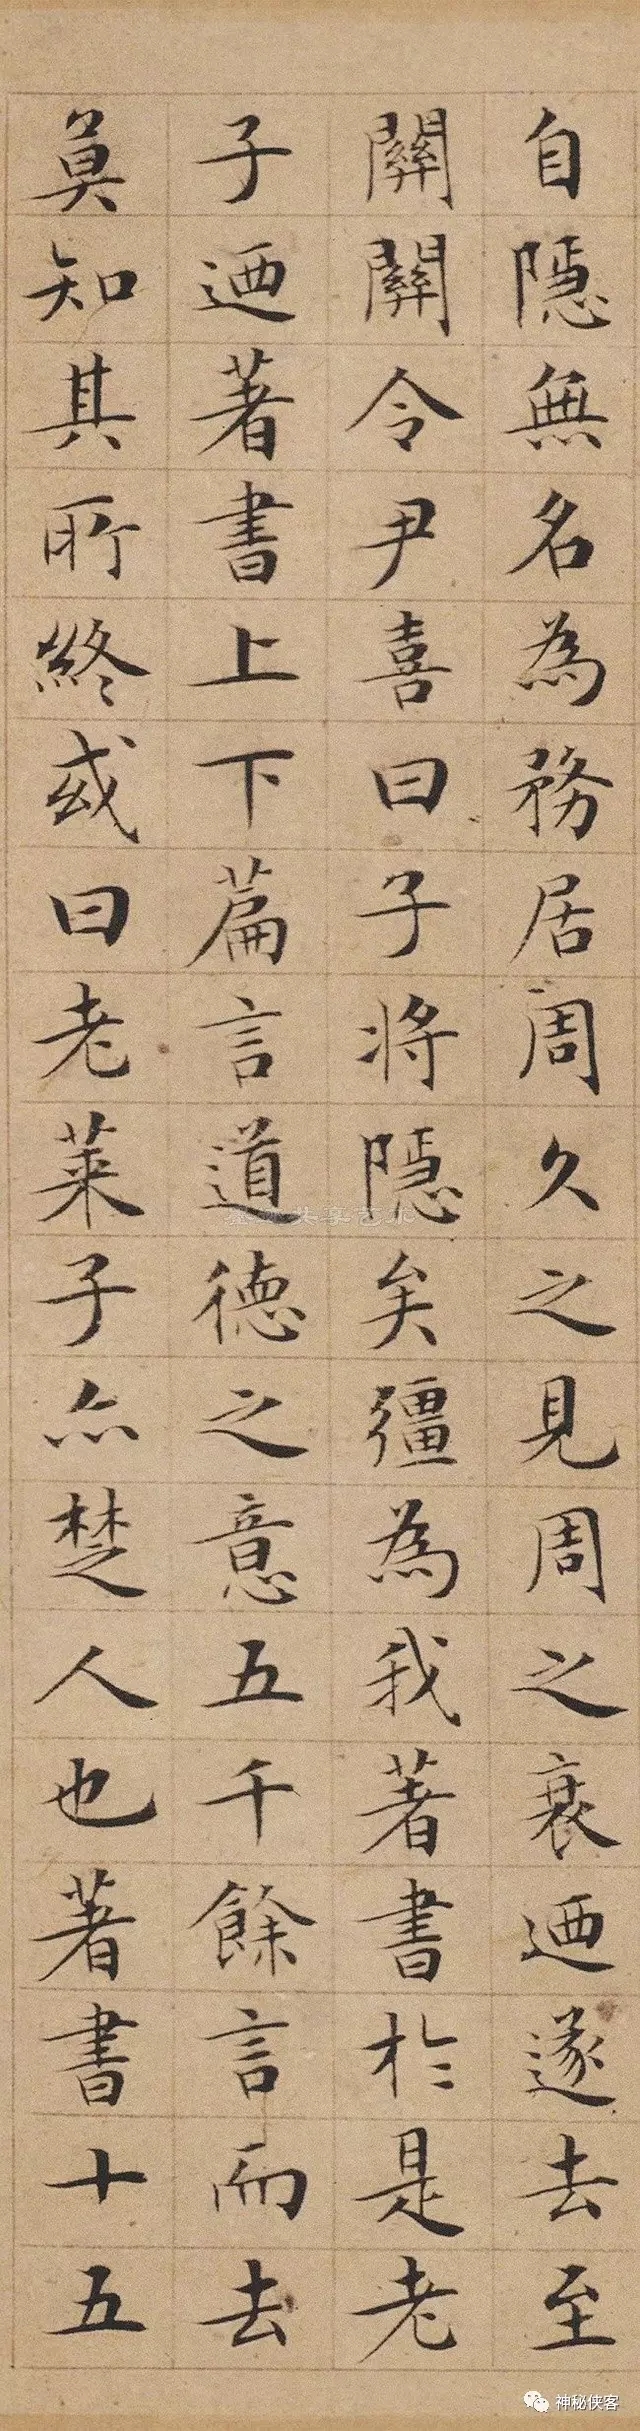 自隱無名為務居周久之見周之衰迺遂去至
關關令尹喜曰子将隱矣彊為我著書於是老
子迺著書上下篇言道德之意五千餘言而去
莫知其所終或曰老莱子亦楚人也著書十五
神秘侠客